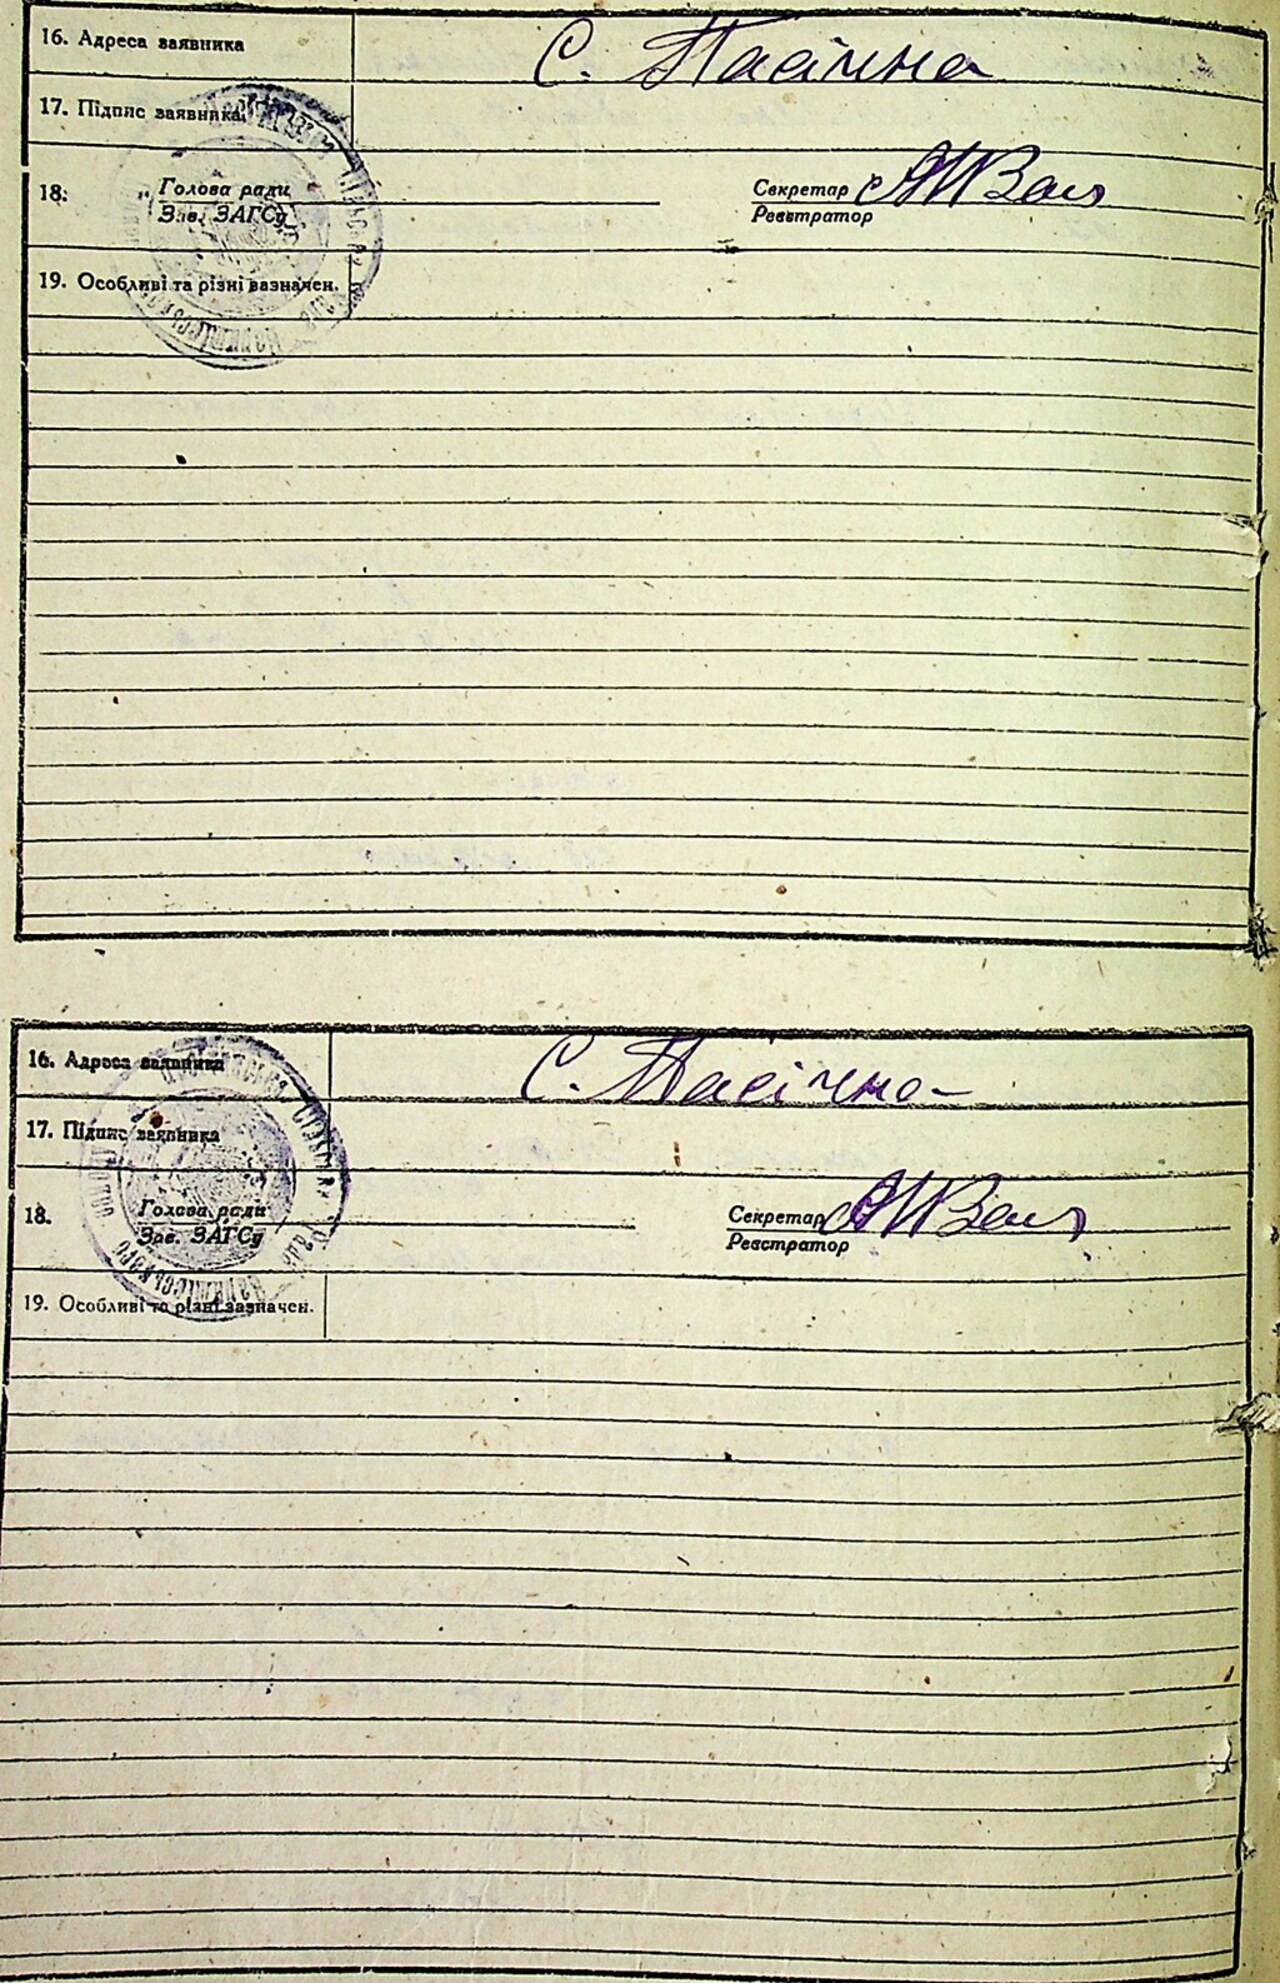 16. Адреса заявника
С. Пасічна
17. Підпис заявника
18.
Голова ради
Зав. ЗАГСу
Секретар
Реєстратор
19. Особливі та різні зазначен.
16. Адреса заявника
С. Пасічна
17. Підпис заявника
18.
Голова ради
Зав. ЗАГСу
Секретар
Реєстратор
19. Особливі та різні зазначен.